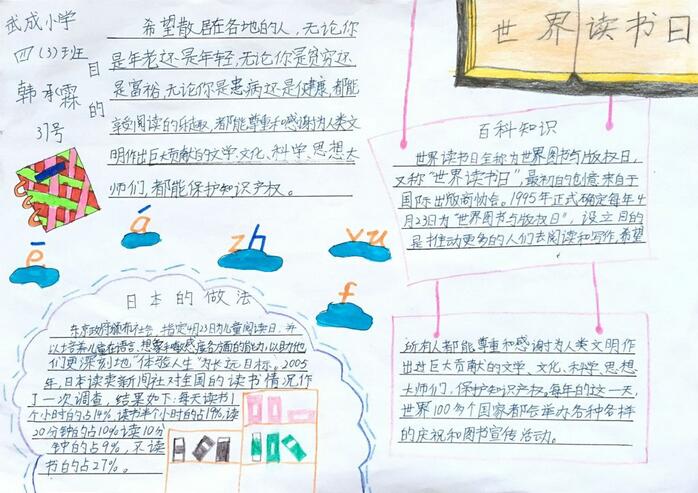 武成小学
四(3)班
韩承霖
37号
目的
希望散居在各地的人,无论你
是年老还是年轻,无论你是贫穷还
是富裕,无论你是患病还是健康,都能
享受阅读的乐趣,都能尊重和感谢为人类文
明作出巨大贡献的文学、文化、科学、思想大
师们,都能保护知识产权。
世界读书日
百科知识
世界读书日全称为世界图书与版权日,
又称“世界读书日”,最初的创意来自于
国际出版商协会。1995年正式确定每年4
月23日为“世界图书与版权日”,设立目的
是推动更多的人们去阅读和写作,希望
所有人都能尊重和感谢为人类文明作
出过巨大贡献的文学、文化、科学、思想
大师们,保护知识产权。每年的这一天,
世界100多个国家都会举办各种各样
的庆祝和图书宣传活动。
ē
á
zh
yu
f
日本的做法
指定4月23日为儿童阅读日,并
以培养儿童在语言、想象和敏感度各方面的能力,以助他
们更深刻地“体验人生”为长远目标。2005
年,日本读卖新闻社对全国的读书情况作
了一次调查,结果如下:每天读书1
个小时的占14%,读书半个小时的占19%,读
20分钟的占10%,读10分
钟的占9%,不读
书的占27%。